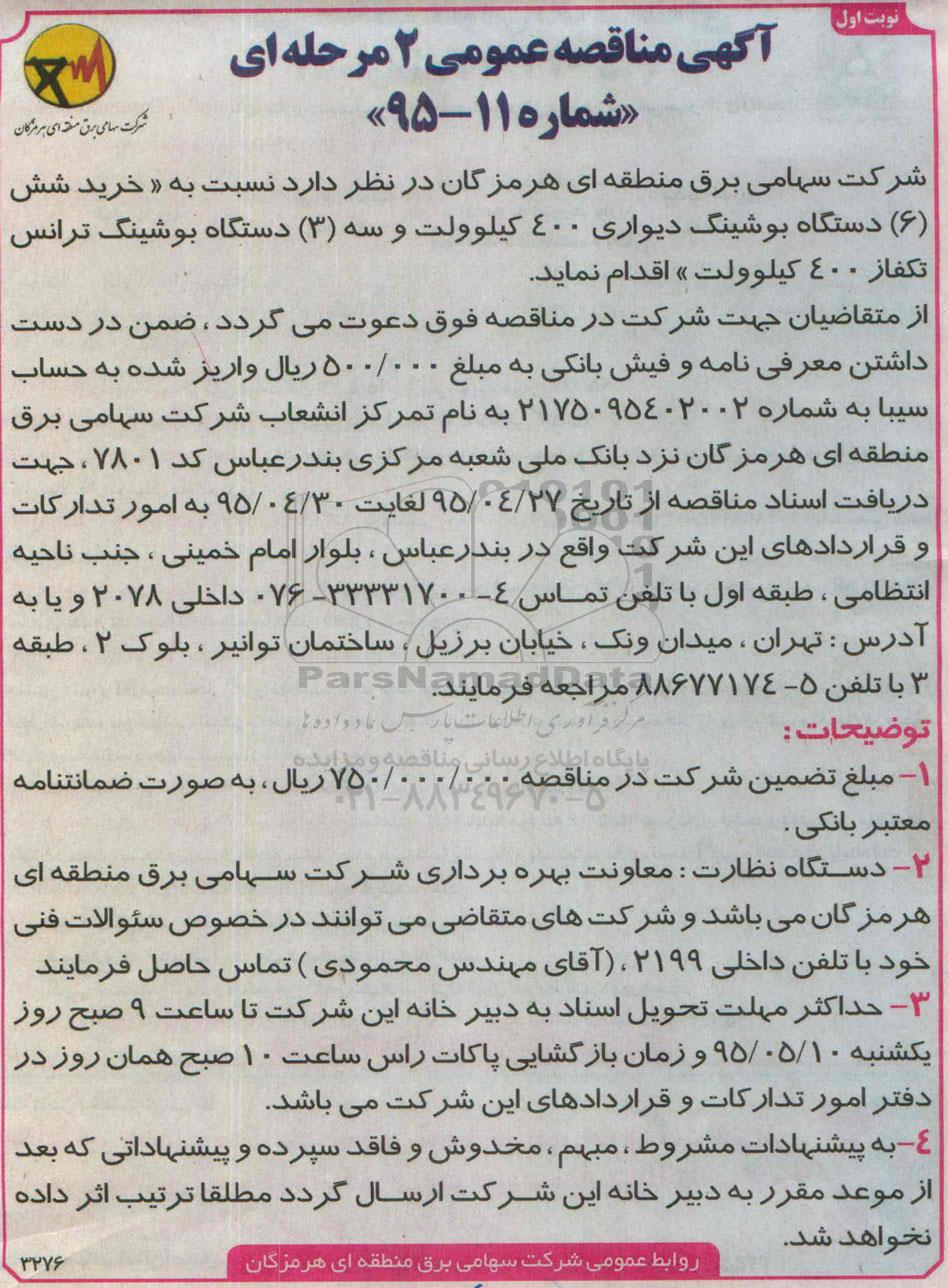 نوبت اول
آگهی مناقصه عمومی ۲ مرحله ای
«شماره ۱۱–۹۵»
شرکت سهامی برق منطقه ای هرمزگان
شرکت سهامی برق منطقه ای هرمزگان در نظر دارد نسبت به « خرید شش
(۶) دستگاه بوشینگ دیواری ۴۰۰ کیلوولت و سه (۳) دستگاه بوشینگ ترانس
تکفاز ۴۰۰ کیلوولت » اقدام نماید.
از متقاضیان جهت شرکت در مناقصه فوق دعوت می گردد ، ضمن در دست
داشتن معرفی نامه و فیش بانکی به مبلغ ۵۰۰/۰۰۰ ریال واریز شده به حساب
سیبا به شماره ۲۱۷۵۰۹۵۴۰۲۰۰۲ به نام تمرکز انشعاب شرکت سهامی برق
منطقه ای هرمزگان نزد بانک ملی شعبه مرکزی بندرعباس کد ۷۸۰۱ ، جهت
دریافت اسناد مناقصه از تاریخ ۹۵/۰۴/۲۷ لغایت ۹۵/۰۴/۳۰ به امور تدارکات
و قراردادهای این شرکت واقع در بندرعباس ، بلوار امام خمینی ، جنب ناحیه
انتظامی ، طبقه اول با تلفن تماس ۴- ۳۳۳۳۱۷۰۰- ۰۷۶ داخلی ۲۰۷۸ و یا به
آدرس : تهران ، میدان ونک ، خیابان برزیل ، ساختمان توانیر ، بلوک ۲ ، طبقه
۳ با تلفن ۵- ۸۸۶۷۷۱۷۴ مراجعه فرمایند.
ParsNamadData
مرکز فرآوری اطلاعات پارس نماد داده ها
توضیحات :
پایگاه اطلاع رسانی مناقصه و مزایده
۱- مبلغ تضمین شرکت در مناقصه ۷۵۰/۰۰۰/۰۰۰ ریال ، به صورت ضمانتنامه
۰۲۱-۸۸۳۴۹۶۷۰-۵
معتبر بانکی .
۲- دستگاه نظارت : معاونت بهره برداری شرکت سهامی برق منطقه ای
هرمزگان می باشد و شرکت های متقاضی می توانند در خصوص سئوالات فنی
خود با تلفن داخلی ۲۱۹۹ ، (آقای مهندس محمودی ) تماس حاصل فرمایند
۳- حداکثر مهلت تحویل اسناد به دبیر خانه این شرکت تا ساعت ۹ صبح روز
یکشنبه ۹۵/۰۵/۱۰ و زمان بازگشایی پاکات راس ساعت ۱۰ صبح همان روز در
دفتر امور تدارکات و قراردادهای این شرکت می باشد.
۴-به پیشنهادات مشروط ، مبهم ، مخدوش و فاقد سپرده و پیشنهاداتی که بعد
از موعد مقرر به دبیر خانه این شرکت ارسال گردد مطلقا ترتیب اثر داده
نخواهد شد.
روابط عمومی شرکت سهامی برق منطقه ای هرمزگان
۳۲۷۶